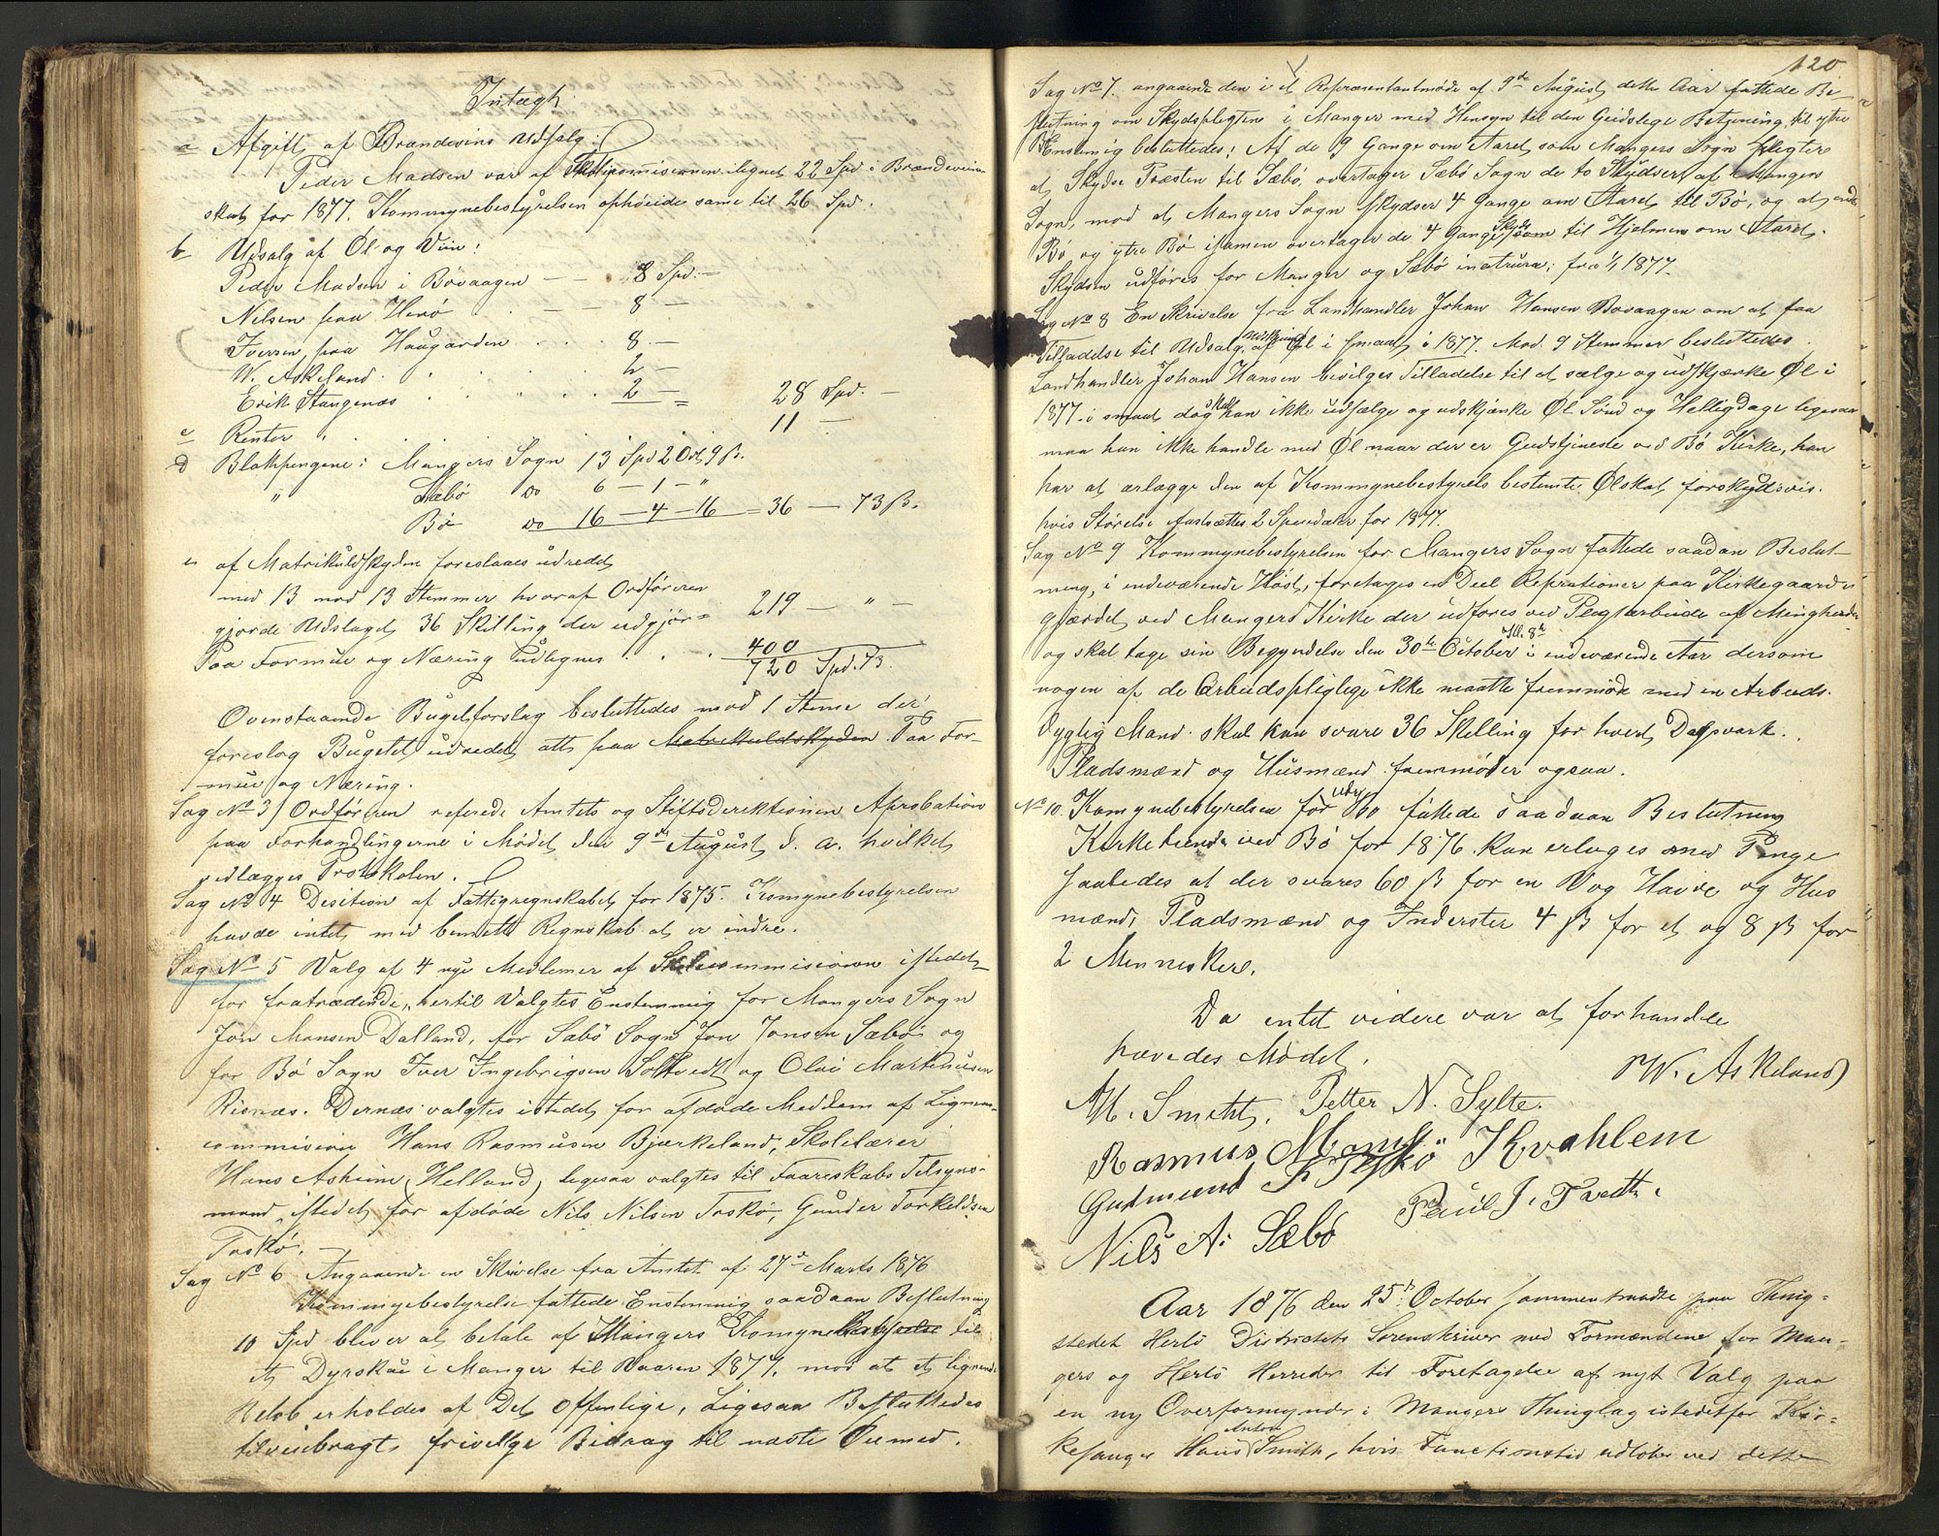 Intægt
a Afgift af Brændevins Udsalg:
Peder Madsen var af Skatkomisionen ilignet 22 Spd i Brændeviin-
skat for 1877. Kommynebestyrelsen ophøiede same til 26 Spd.
b Udsalg af Øl og Viin:
Peder Madsen i Bøvaagen — — 8 Spd. —
Nilsen paa Herø — — 8 —
Iversen paa Haugarden . . . 8. —
W. Askeland . . . . 2 —
Erik Stangenæs . . . . . 2 — = 28 Spd. —
c Renter . . . . . . . 11 —
d Blokpengene: Mangers Sogn 13 Spd 2 Ort 9 ß.
" Sæbø do 6 — 1 — "
Bø do 16 — 4 — 16 = 36 — 73 ß.
e af Matrikulskylden foreslaaes udredet
med 13 mod 13 Stemmer hvoraf Ordføreren
gjorde Udslaget, 36 Skilling der udgjør = 219 — " —
Paa Formue og Næring udlignes . . . 400
720 Spd. 73.
Ovenstaaende Bugetforslag besluttedes mod 1 Steme der
foreslog Bugetet udredet alt paa Matrikulskylden. Paa For-
mue og Næring.
Sag No 3) Ordføreren referede Amtets og Stiftsderektionen Aprobation
paa Forhandlingerne i Mødet den 9de August d. a. hvilket
vedlægges Protokolen.
Sag No 4 Desition af Fattigregnskabet for 1875. Komynebestyrelsen
havde intet med bemeldte Regnskab at er indre.
Sag No 5 Valg af 4 nye Medlemer af Skolecommisionen istedet
for fratrædende, hertil Valgtes Enstemmig for Mangers Sogn
Jon Monsen Dalland, for Sæbø Sogn Jon Jonsen Sæbø og
for Bø Sogn Iver Ingebrigsen Soltvedt og Olai Marthinusen
Risnæs. Dernæs valgtes istedet for afdøde Medlem af Lignings-
commision Hans Rasmusen Bjørkeland, Skolelærer
Hans Asheim (Helland), ligesaa valgtes til Faareskabs Tilsyns-
mand istedet for afdøde Nils Nilsen Toskø, Gunder Torkeldsen
Toskø. —
Sag No 6 Angaaende en Skrivelse fra Amtet af 27de Marts 1876
Kommynebestyrelse fattede Enstemmig saadaan Beslutning
10 Spd bliver at betale af Mangers Komynebestyrelse til
et Dyrskue i Manger til Vaaren 1877, mod at et lignende
Beløb erholdes af Det offenlige, Ligesaa Besluttedes
tilveiebragt frivellge Bidrag til nævte Øiemed.
120
Sag No 7. angaaende den i et Repræsentantmøde af 9de August dette Aar fattede Be-
slutning om Skydspligten i Manger med Hensyn til den Geistlege Betjening til ytre
Bø Enstemig besluttedes: At de 9 Gange om Aaret som Mangers Sogn pligter
at Skydse Præsten til Sæbø, overtager Sæbø Sogn de to Skydser af Mangers
Sogn, mod at Mangers Sogn Skydser 4 Gange om Aaret til Bø, og at indre
Bø og ytre Bø isamen overtager de 4 Gange Skyds som til Hjelmen om Aaret.
Skydsen udføres for Manger og Sæbø inatrura; fra 1/1 1877.
Sag No 8 En Skrivelse fra Landhandler Johan Hansen Bovaagen om at faa
Tilladelse til Udsalg Udskjænk af Øl i Smaat i 1877. Med 9 Stemmer besluttedes.
Landhandler Johan Hansen bevilges Tilladelse til at sælge og udskjænke Øl i
1877 i smaat dog skal han ikke udsælge og udskjænke Øl Sønd og Helligdage ligesaa
maa han ikke handle med Øl naar der er Gudstjineste ved Bø Kirke, han
har at ærlægge den af Kommynebestyrels bestemte Ølskat forskudsvis.
hvis Størelse fastsættes 2 Speciedaler for 1877.
Sag No 9 Kommynebestyrelsen for Mangers Sogn fattede saadan Beslut-
ning, i indeværende Høst, foretages en Deel Reprationer paa Kirkegaards-
gjærdet ved Mangers Kirke der udføres ved Pligtarbeide af Mingheden
og skal tage sin Begyndelse den 30te October Kl. 8te i indeværende Aar dersom
nogen af de Arbeidspligtige ikke maatte fremmøde med en Arbeids-
dygtig Mand skal han svare 36 Skelling for hvert Dagsværk.
Pladsmænd og Husmænd fremmøder ogsaa.
No 10. Komynebestyrelsen for ydre Bø fattede saadaan Beslutning
Kirketiende ved Bø for 1876 kan erlæges med Penge
saaledes at der svares 60 ß for en Vog Havre og Hus
mænd, Pladsmænd og Inderster 4 ß for et og 8 ß for
2 Mennesker.
Da intet videre var at forhandle
hævedes Mødet.
W. Askeland
A. H. Smith. Petter N. Sylte.
Rasmus Monsø Kvahlem
Gudmund Toskø Paul J. Tvedt.
Nils A. Sæbø
Aar 1876 den 25de October sammentraadte paa Thing-
stedet Herlö Districtets Sorenskriver med Formændene for Man-
gers og Herlö Herreder til Foretagelse af nyt Valg paa
en ny Overformynder i Mangers Thinglag istedetfor Kir-
kesanger Hans Anton Smith, hvis Functionstid udløber ved dette